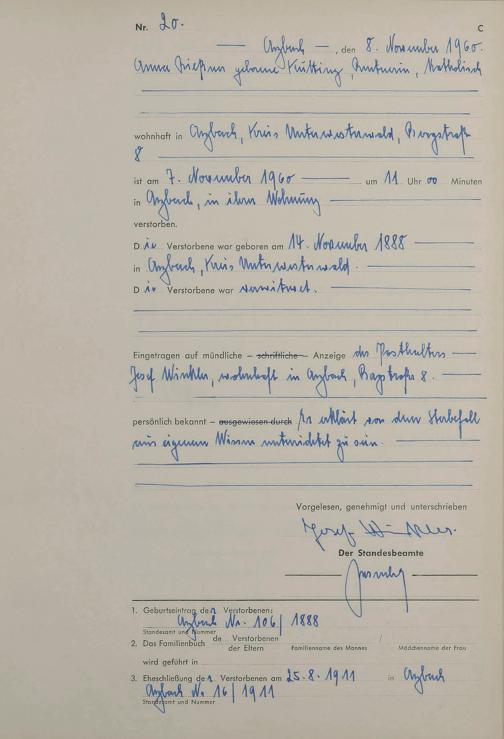 Nr. 20. C
Arzbach, den 8. November 1960.
Anna geborene Kutting, Rentnerin, Katholisch
wohnhaft in Arzbach, Kreis Unterwesterwald, Bergstraße
8
ist am 7. November 1960 um 11 Uhr 00 Minuten
in Arzbach, in ihrer Wohnung
verstorben.
Die Verstorbene war geboren am 14. November 1888
in Arzbach, Kreis Unterwesterwald.
Die Verstorbene war verwitwet.
Eingetragen auf mündliche – schriftliche – Anzeige des Posthalters
Josef Winkler, wohnhaft in Arzbach, Bergstraße 8.
persönlich bekannt – ausgewiesen durch Er erklärt von dem Sterbefall
aus eigenem Wissen unterrichtet zu sein.
Vorgelesen, genehmigt und unterschrieben
Josef Winkler.
Der Standesbeamte
1. Geburtseintrag der Verstorbenen:
Arzbach Nr. 106/1888
Standesamt und Nummer
2. Das Familienbuch de Verstorbenen / der Eltern Familienname des Mannes / Mädchenname der Frau
wird geführt in
3. Eheschließung der Verstorbenen am 25.8.1911 in Arzbach
Arzbach Nr. 16/1911
Standesamt und Nummer